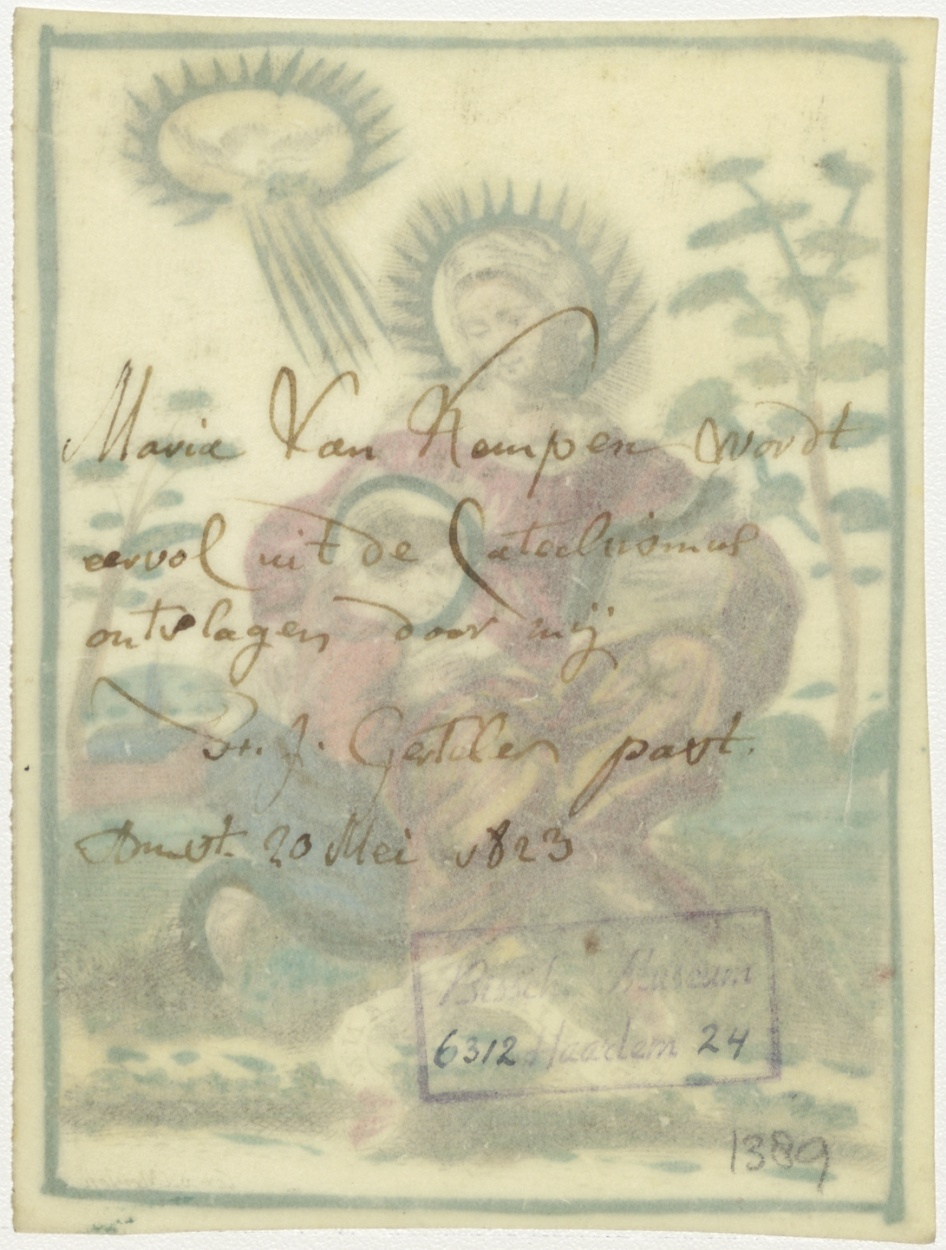 Maria Van Kempen wordt
eervol uit de Catechismus
ontslagen door mij
J. past.
20 Mei 1823
Bissch. Museum
6312 Haarlem 24
1389